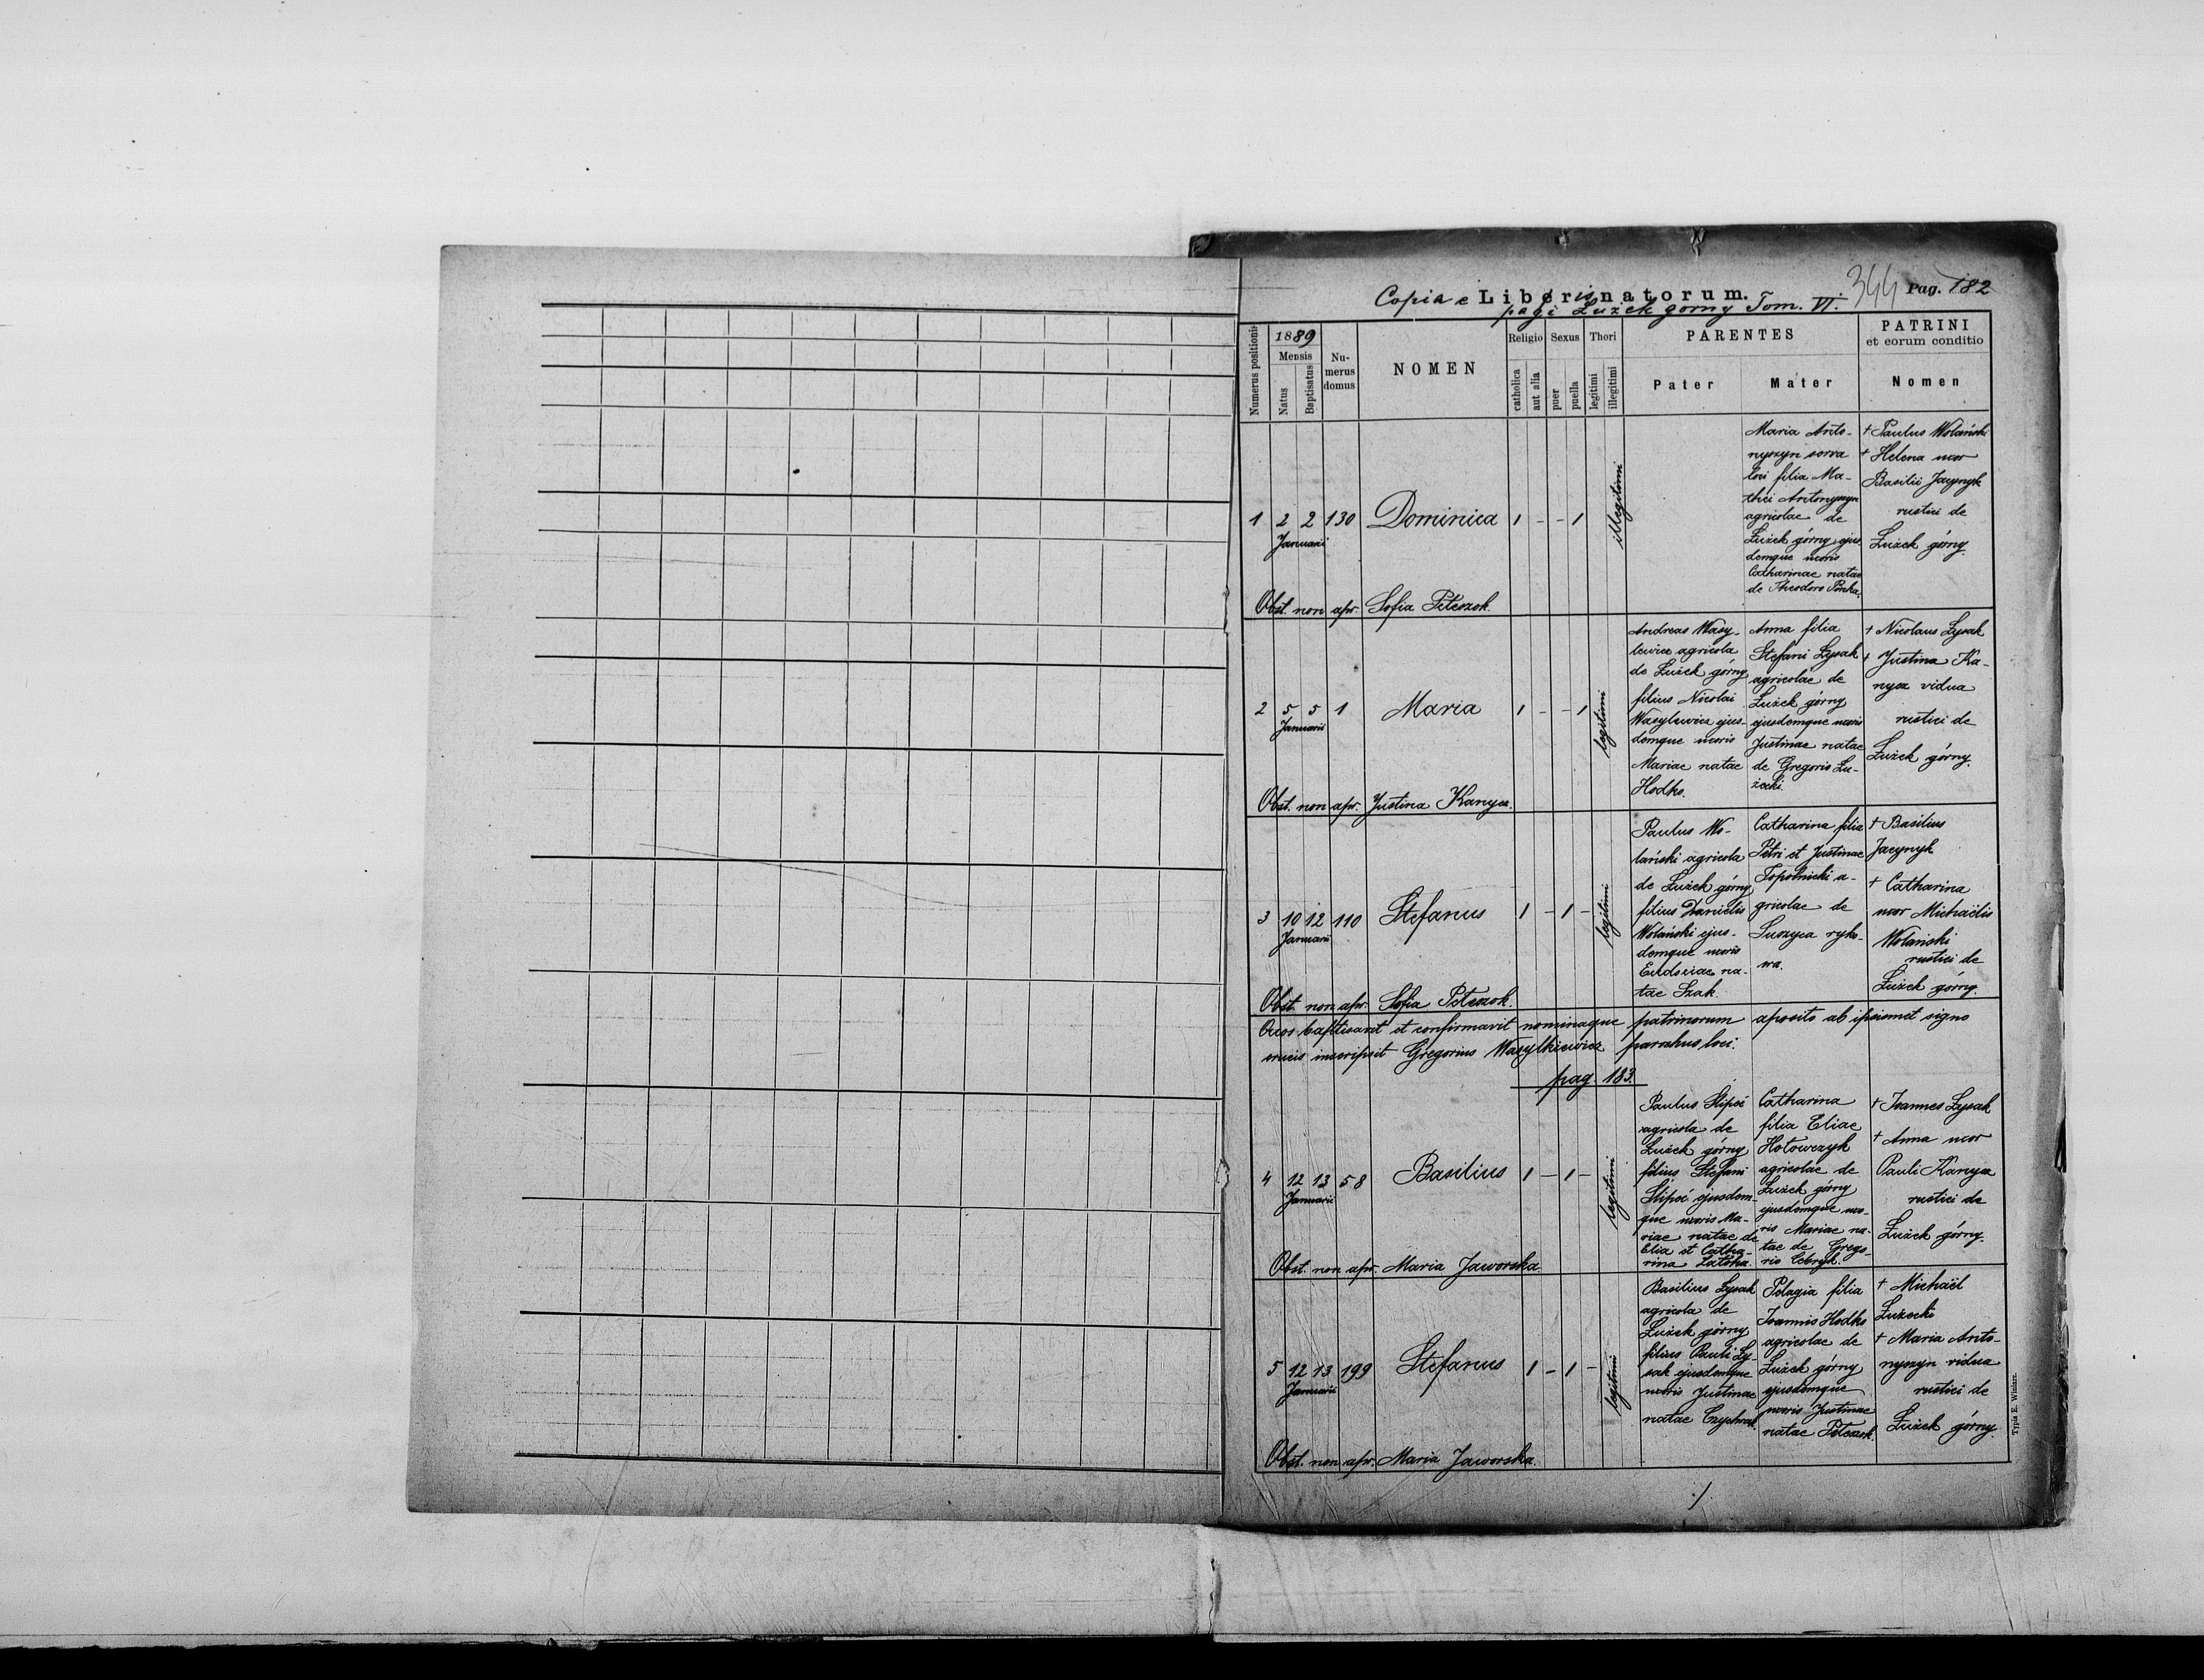 Copia e Libri natorum. 344 Pag. 182
pagi Łużek górny Tom. VI.
Numerus positionis
1889
Mensis
Natus
Baptisatus
Nu-
merus
domus
NOMEN
Religio
catholica
aut alia
Sexus
puer
puella
Thori
legitimi
illegitimi
PARENTES
Pater
Mater
PATRINI
et eorum conditio
Nomen
1 2 2 130 Dominica 1 - - 1 illegitimi
Januarii
Maria Anto-
nyszyn serva
loci filia Ma-
thei Antonyszyn
agricolae de
Łużek górny ejus
demque uxoris
Catharinae natae
de Theodoro Ponka.
+ Paulus Wolański
+ Helena uxor
Basilii Jacynyk
rustici de
Łużek górny.
Obst. non apr. Sofia Peteszok.
2 5 5 1 Maria 1 - - 1 legitimi
Januarii
Andreas Wasy-
lewicz agricola
de Łużek górny
filius Nicolai
Wasylewicz ejus-
demque uxoris
Mariae natae
Hodko.
Anna filia
Stefani Łysak
agricolae de
Łużek górny
ejusdemque uxoris
Justinae natae
de Gregorio Łu-
żecki.
+ Nicolaus Łysak
+ Justina Ka-
nycz vidua
rustici de
Łużek górny.
Obst. non apr. Justina Kanycz.
3 10 12 110 Stefanus 1 - 1 - legitimi
Januarii
Paulus Wo-
lański agricola
de Łużek górny
filius Danielis
Wolański ejus-
demque uxoris
Eudociae na-
tae Szak.
Catharina filia
Petri et Justinae
Topolnicki a-
gricolae de
Suszyca ryko-
wa.
+ Basilius
Jacynyk
+ Catharina
uxor Michaëlis
Wolański
rustici de
Łużek górny.
Obst. non apr. Sofia Peteszok.
Quos baptisavit et confirmavit nominaque patrinorum aposito ab ipsismet signo
crucis inscripsit Gregorius Wasylkiewicz parochus loci.
pag. 183.
4 12 13 58 Basilius 1 - 1 - legitimi
Januarii
Paulus Slipeć
agricola de
Łużek górny
filius Stefani
Slipeć ejusdem-
que uxoris Ma-
riae natae de
Elia et Catha-
rina Łatoka.
Catharina
filia Eliae
Hołowczyk
agricolae de
Łużek górny
ejusdemque uxo-
ris Mariae na-
tae de Grego-
rio Cebryk.
+ Joannes Łysak
+ Anna uxor
Pauli Kanycz
rustici de
Łużek górny.
Obst. non apr. Maria Jaworska
5 12 13 199 Stefanus 1 - 1 - legitimi
Januarii
Basilius Łysak
agricola de
Łużek górny
filius Pauli Ły-
sak ejusdemque
uxoris Justinae
natae
Pelagia filia
Joannis Hodko
agricolae de
Łużek górny
ejusdemque
uxoris Justinae
natae Peteszok.
+ Michaël
Łużecki
+ Maria Anto-
nyszyn vidua
rustici de
Łużek górny.
Obst. non apr. Maria Jaworska.
Typis E. Winiarz.
./.